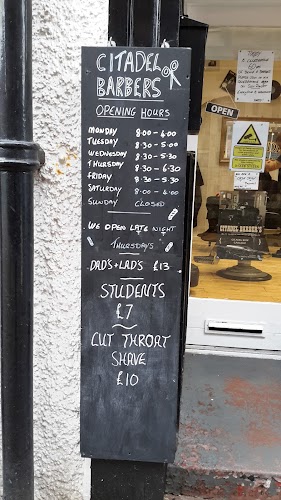 CITADEL
BARBERS
OPENING HOURS
MONDAY 8:00 - 6:00
TUESDAY 8:30 - 5:30
WEDNESDAY 8:30 - 5:30
THURSDAY 8:30 - 5:30
FRIDAY 8:30 - 5:30
SATURDAY 8:00 - 6:00
SUNDAY CLOSED
WE OPEN LATE NIGHT
THURSDAY'S
DAD'S + LAD'S £13
STUDENTS
£7
CUT THROAT
SHAVE
£10
OPEN
CITADEL BARBER'S